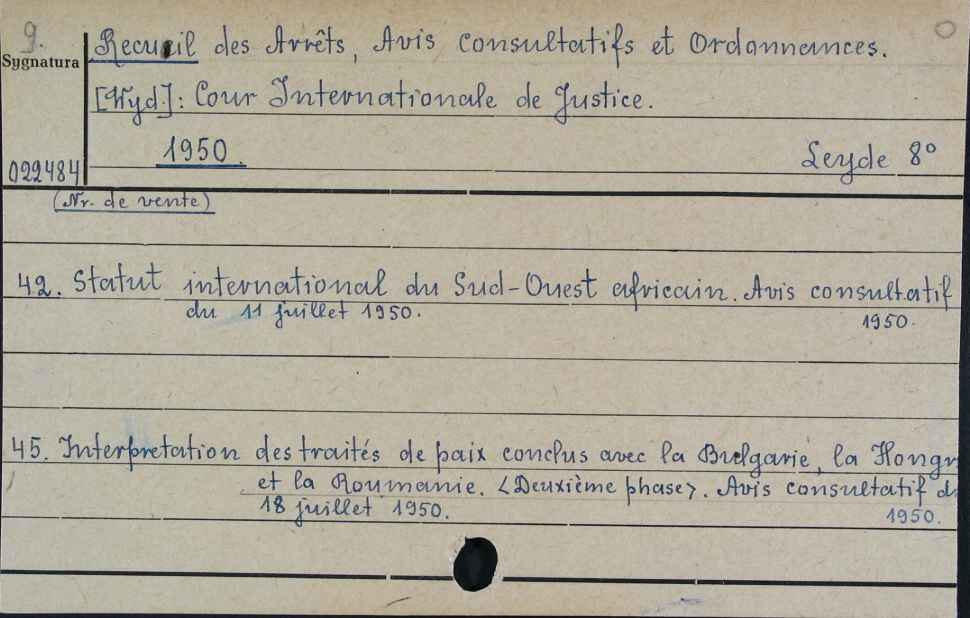 9.
Sygnatura
Recueil des Arrêts, Avis consultatifs et Ordonnances.
[Wyd.]: Cour Internationale de Justice.
1950.
Leyde 8°
022484
(Nr. de vente)
42. Statut international du Sud-Ouest africain. Avis consultatif
du 11 juillet 1950.
1950.
45. Interpretation des traités de paix conclus avec la Bulgarie, la Hongr
et la Roumanie. <Deuxième phase>. Avis consultatif d
18 juillet 1950.
1950.